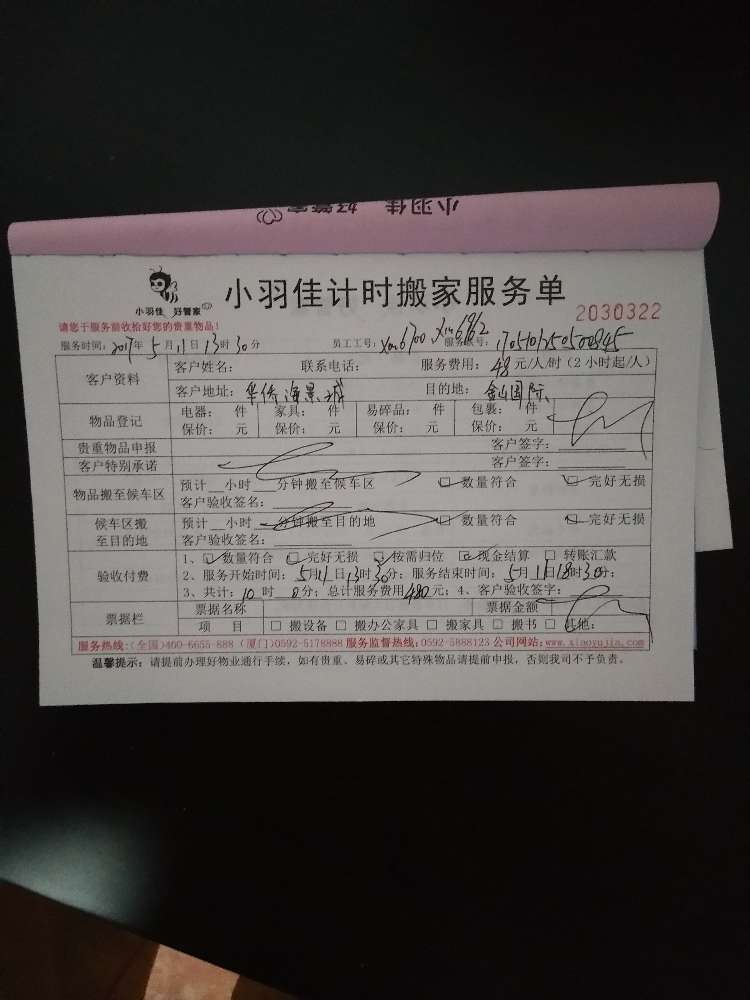 小羽佳 好管家
小羽佳 好管家
小羽佳计时搬家服务单
2030322
请您于服务前收拾好您的贵重物品!
服务时间: 2017年 5月 11日 13时 30分 员工工号: Xm6700 Xm6962 服务账号:
客户资料
客户姓名: 联系电话: 服务费用: 48元/人/时(2小时起/人)
客户地址: 华侨海景城 目的地: 金山国际
物品登记
电器: 件 家具: 件 易碎品: 件 包裹: 件
保价: 元 保价: 元 保价: 元 保价: 元
贵重物品申报 客户签字:
客户特别承诺 客户签字:
物品搬至候车区
预计__小时__分钟搬至候车区 数量符合 完好无损
客户验收签名:
候车区搬至目的地
预计__小时__分钟搬至目的地 数量符合 完好无损
客户验收签名:
验收付费
1、数量符合 完好无损 按需归位 现金结算 转账汇款
2、服务开始时间: 5月11日13时30分; 服务结束时间: 5月11日18时30分;
3、共计: 10时 0分; 总计服务费用480元; 4、客户验收签字:
票据栏
票据名称 票据金额
项 目 □搬设备 □搬办公家具 □搬家具 □搬书 □其他:
服务热线:(全国)400-6655-888 (厦门)0592-5178888 服务监督热线:0592-5888123 公司网站:www.xiaoyujia.com
温馨提示: 请提前办理好物业通行手续, 如有贵重、易碎或其它特殊物品请提前申报, 否则我司不予负责。